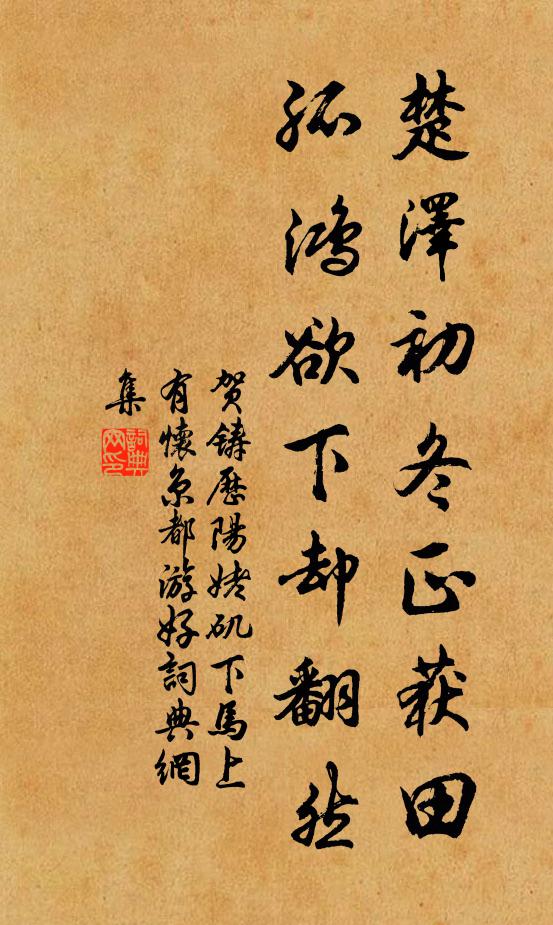 楚澤初冬正获田
孤鴻欲下却翻然
贺鑄歷陽姥矶下馬上
有懷京都游好詞典網
集
詞典網印